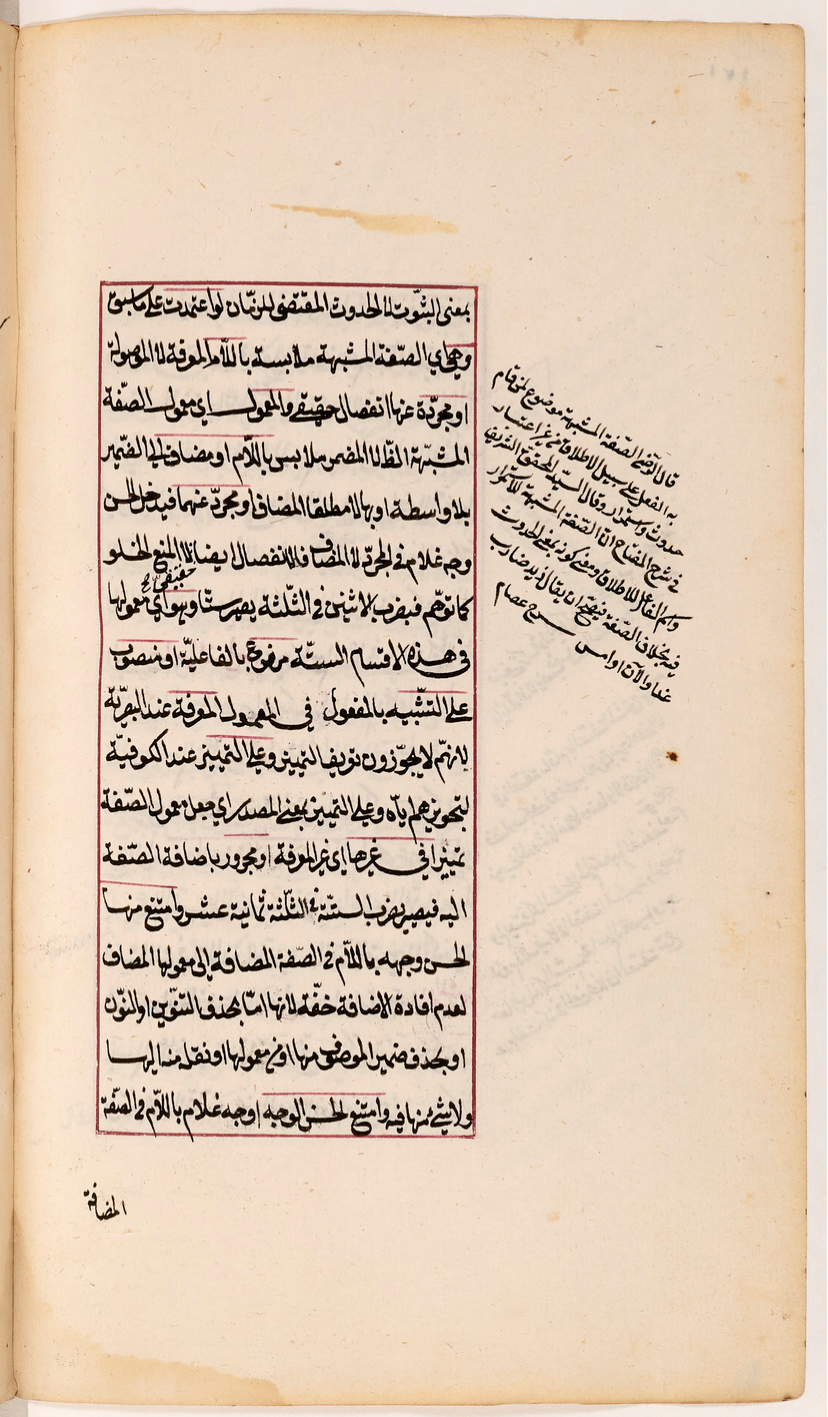 بمعنى الثبوت لا الحدوث المقتضى للزمان لو اعتمدت على ما سبق
وهي اي الصّفة المشبهة ملابسة باللّام المعرفة لا الموصولة
او مجرّدة عنها انفصال حقيقي والمعمول اي معمول الصّفة
المشبّهة المظهر لا المضمر ملابس باللّام او مضاف الى الضمير
بلا واسطة او بها لا مطلقا المضاف او مجرّد عنهما فيدخل الحسن
وجه غلام في المجرّد لا المضاف فالانفصال ايضا لا المنع الخلو
حقيقي
كما توهّم فبضرب الاثنين في الثّلثة يصير ستّا وهو اي معمولها
في هذه الاقسام الستّة مرفوع بالفاعليّة او منصوب
على التشبيه بالمفعول في المعمول المعرفة عند البصريّة
لانهّم لا يجوّزون تعريف التمييز وعلى التمييز عند الكوفيّة
لتجويزهم ايّاه وعلى التمييز بمعنى المصدر اي جعل معمول الصّفة
تمييزا في غيرها اي غير المعرفة او مجرور باضافة الصّفة
اليه فيصير بضرب الستّة في الثّلثة ثمانية عشر وامتنع منها
الحسن وجهه باللّام في الصّفة المضافة إلى معمولها المضاف
لعدم افادة الاضافة خفّة لانها امّا بحذف التنوين او النّون
او بحذف ضمير الموصوف منها او من معمولها او نقله منه اليها
ولا شئ منها فيه وامتنع الحسن الوجه او وجه غلام باللّام في الصّفة
المضافة
قال الرضى الصّفة المشبهة موضوع لمن قام
به الفعل على سبيل الاطلاق من غير اعتبار
حدوث واستمرار وقال السيّد المحقق الشريف
في شرح المفتاح انّ الصّفة المشبهة للاستمرار
واسم الفاعل للاطلاق ومعنى كونه بمعنى الحدوث
فيه بخلاف الصّفة فيصح ان يقال زيد ضارب
غدا والآن او امس شرح عصام